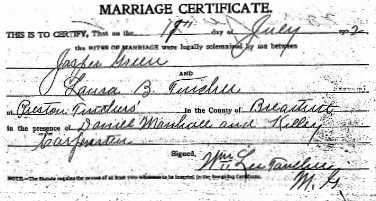 MARRIAGE CERTIFICATE.
THIS IS TO CERTIFY, That on the 17" day of July 1902
the RITES OF MARRIAGE were legally solemnized by me between
Jasper Green
AND
Laura B.
at Preston in the County of Breathitt
in the presence of Daniel Marshall and Killey
Signed, Wm Lee
NOTE.—The Statute requires the names of at least two witnesses to be inserted in the foregoing Certificate. M. G